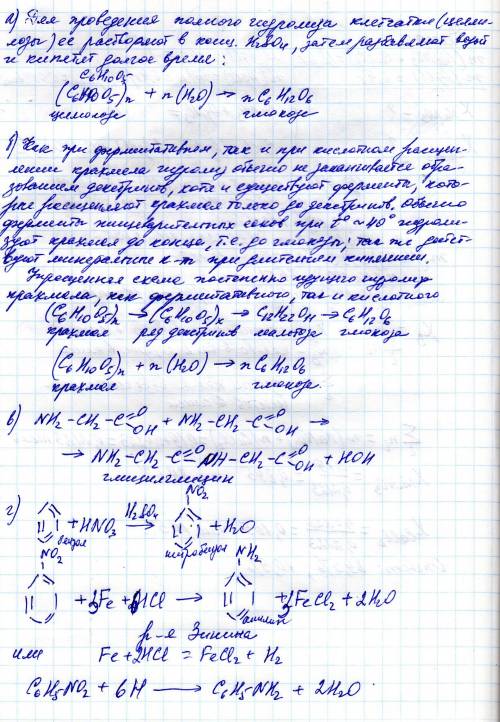 а) Для проведения полного гидролиза клетчатки (целлю-
лозы) её растворяют в конц. H₂SO₄, затем разбавляют водой
и кипятят долгое время:
C₆H₁₀O₅
(C₆H₁₀O₅)n + n(H₂O) → n C₆H₁₂O₆
целлюлоза глюкоза
б) Как при ферментативном, так и при кислотном расщеп-
лении крахмала гидролиз обычно не заканчивается обра-
зованием декстринов, хотя и существуют ферменты, кото-
рые расщепляют крахмал только до декстринов. Обычно
ферменты пищеварительных соков при t° ~ 40° гидроли-
зуют крахмал до конца, т.е. до глюкозы; так же дейст-
вуют минеральные к-ты при длительном кипячении.
Упрощенная схема постепенно идущего гидролиза
крахмала, как ферментативного, так и кислотного
(C₆H₁₀O₅)n → (C₆H₁₀O₅)x → C₁₂H₂₂O₁₁ → C₆H₁₂O₆
крахмал ряд декстринов мальтоза глюкоза
(C₆H₁₀O₅)n + n(H₂O) → n C₆H₁₂O₆
крахмал глюкоза
в) NH₂-CH₂-C=O OH + NH₂-CH₂-C=O OH →
→ NH₂-CH₂-C=O NH-CH₂-C=O OH + HOH
глицилглицин
NO₂
г) + HNO₃ H₂SO₄ → + H₂O
бензол нитробензол
NO₂ NH₂
+ 3Fe + 6HCl → + 3FeCl₂ + 2H₂O
анилин
р-я Зинина
или Fe + 2HCl = FeCl₂ + H₂
C₆H₅NO₂ + 6H → C₆H₅NH₂ + 2H₂O